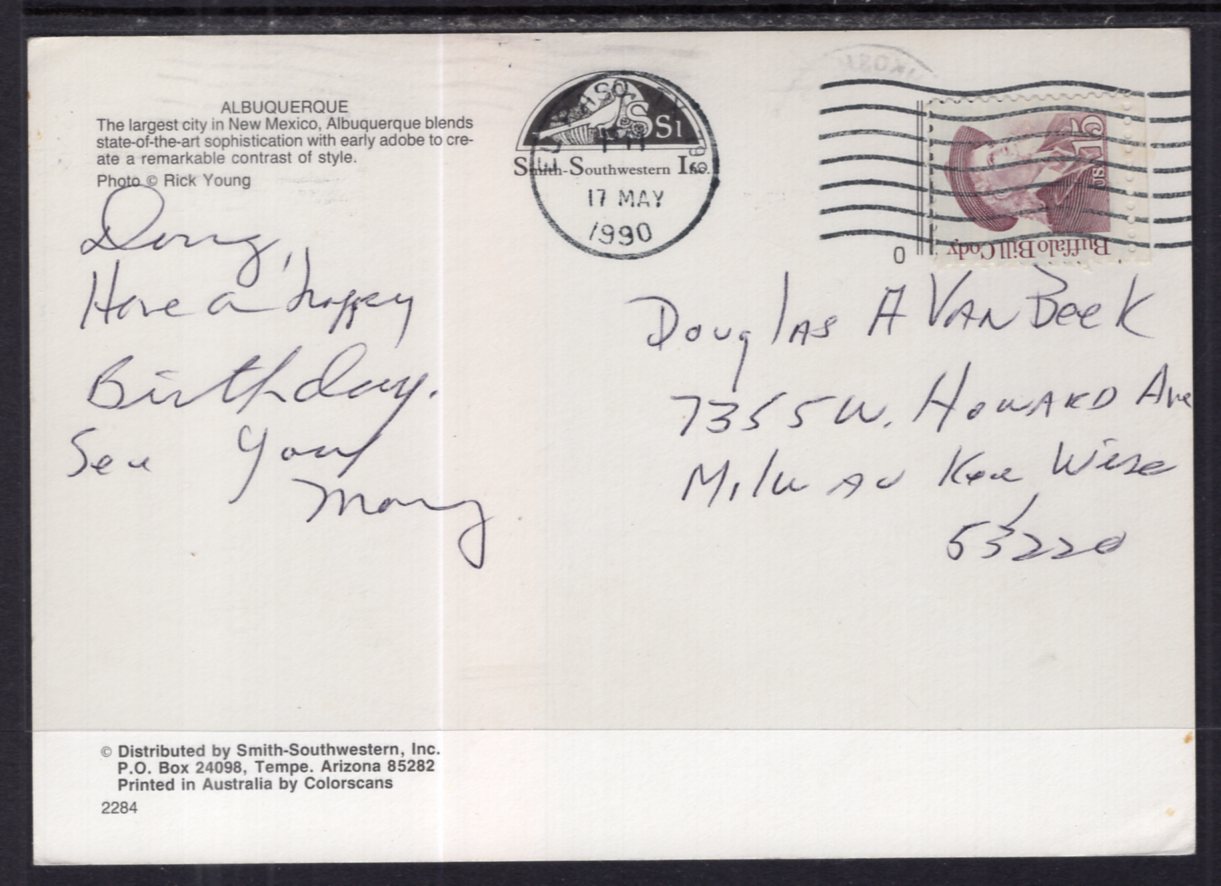 ALBUQUERQUE
The largest city in New Mexico, Albuquerque blends
state-of-the-art sophistication with early adobe to cre-
ate a remarkable contrast of style.
Photo © Rick Young
Doug,
Have a happy
Birthday.
See You
SSI
Smith-Southwestern Inc.
17 MAY
1990
USA 15
Buffalo Bill Cody
0
Douglas A VanBeek
7355 W. Howard Ave
Milwaukee Wisc
53220
© Distributed by Smith-Southwestern, Inc.
P.O. Box 24098, Tempe. Arizona 85282
Printed in Australia by Colorscans
2284